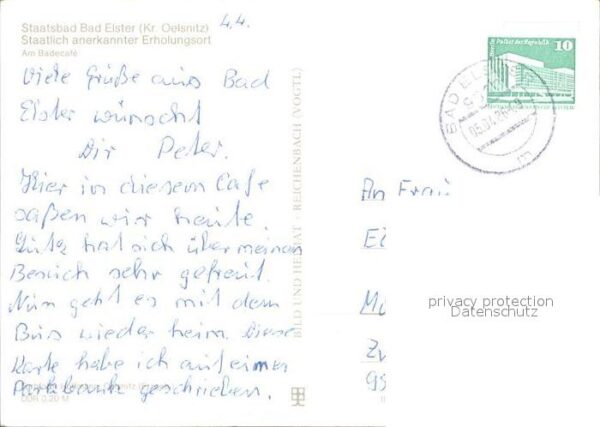 Staatsbad Bad Elster (Kr. Oelsnitz)
Staatlich anerkannter Erholungsort
Am Badecafé
4.4.
Viele Grüße aus Bad
Elster wünscht
Dir Peter.
Hier in diesem Cafe
saßen wir heute.
hat sich über meinen
Besuch sehr gefreut.
Nun geht es mit dem
Bus wieder heim. Diese
Karte habe ich auf einer
Parkbank geschrieben.
DDR 0,20 M
BILD UND HEIMAT · REICHENBACH (VOGTL)
Palast der Republik
10
BAD ELSTER
An Frau
privacy protection
Datenschutz